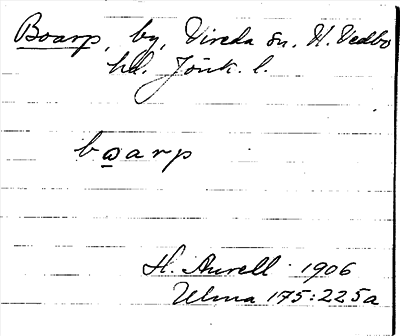 Boarp, by, Vireda sn. N. Vedbo
hd. Jönk. l.
boarp
H. Aurell 1906
Ulma 175:225a